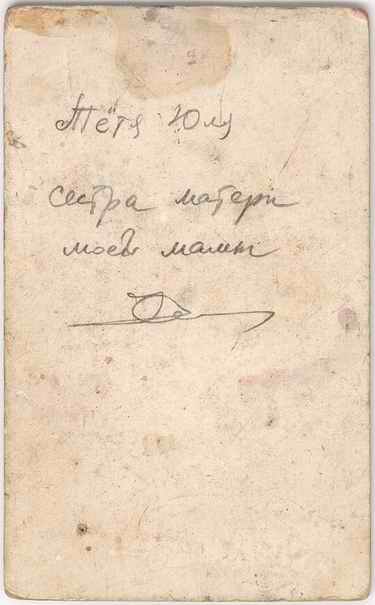 Тётя Юля
сестра матери
моей мамы